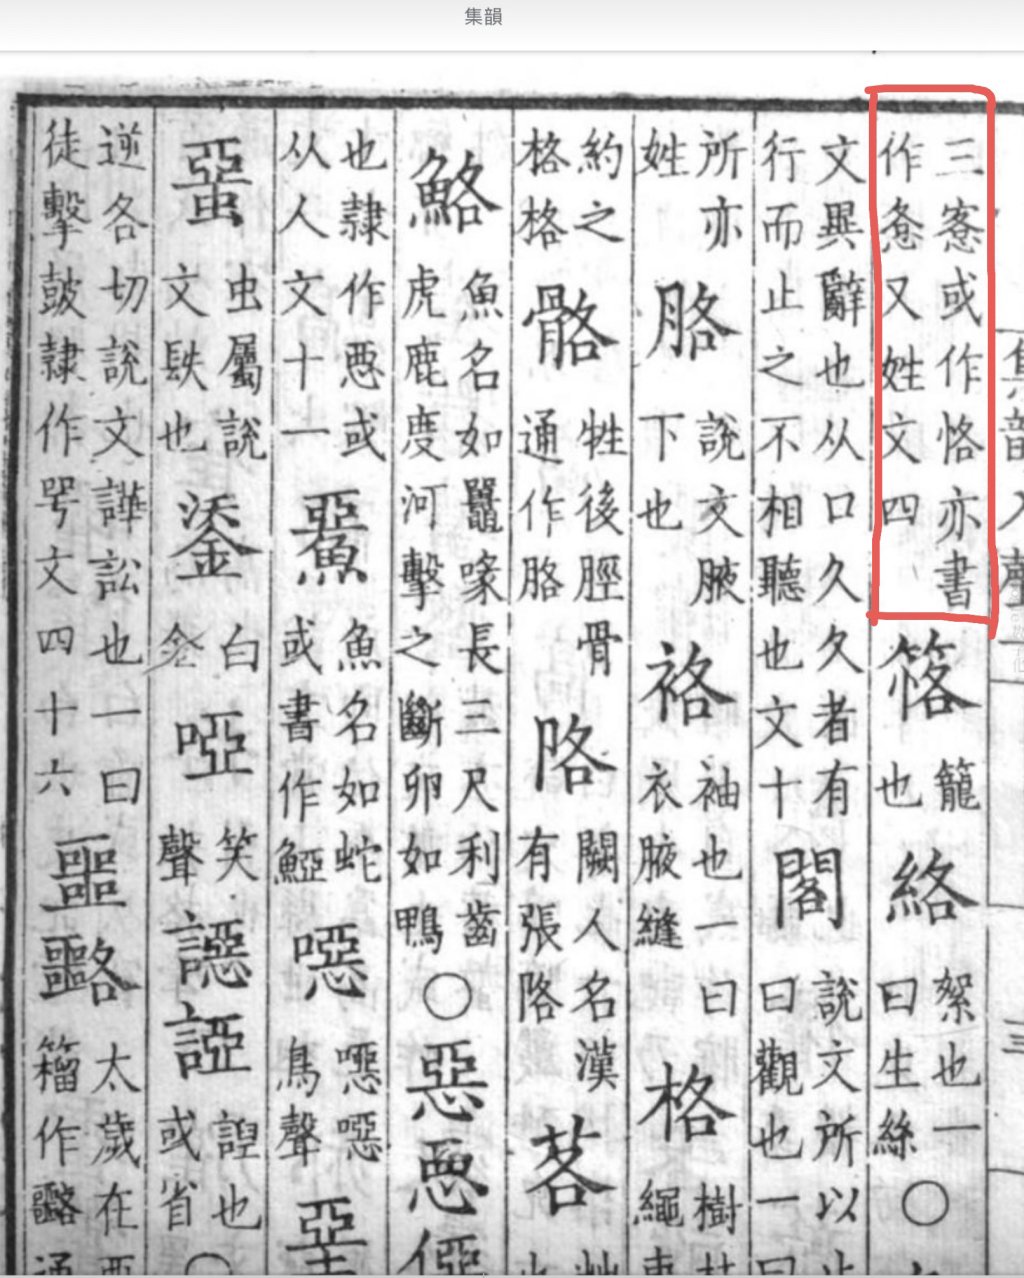 集韻
三愙或作恪亦書
作㤩又姓文四
笿
籠
也
絡
絮也一
曰生絲
○
文異辭也从口久久者有
行而止之不相聽也文十
閣
說文所以止
曰觀也一曰
所亦
姓
胳
說文腋
下也
袼
袖也一曰
衣腋縫
格
樹枝
繩束
約之
格格
骼
牲後脛骨
通作胳
䧄
闕人名漢
有張䧄
茖
鮥
魚名如鼉喙長三尺利齒
虎鹿度河擊之斷卵如鴨
○
惡
悪
僫
也隸作悪或
从人文十一
魚名如蛇
或書作
噁
噁噁
鳥聲
堊
蝁
虫屬說
文镻也
鋈
白
金
啞
笑
聲
誈
諻也
或省
○
逆各切說文譁訟也一曰
徒擊鼓隸作咢文四十六
噩
太歲在酉
籀作